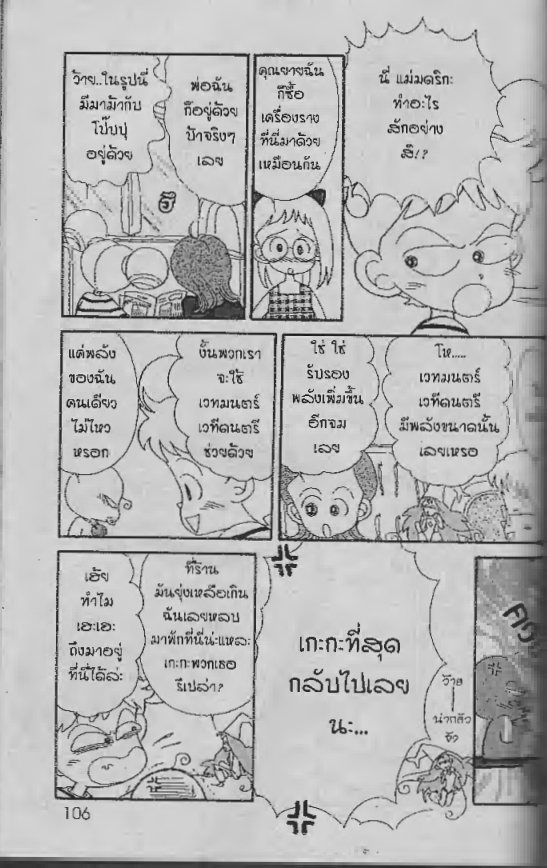 ว้าย..ในรูปนี้
มีมาม้ากับ
โป๊บปุ
อยู่ด้วย
พ่อฉัน
ก็อยู่ด้วย
ป้าจริงๆ
เลย
คุณยายฉัน
ก็ซื้อ
เครื่องราง
ที่นี่มาด้วย
เหมือนกัน
นี่ แม่มดริกะ
ทำอะไร
สักอย่าง
สิ!?
แค่พลัง
ของฉัน
คนเดียว
ไม่ไหว
หรอก
งั้นพวกเรา
จะใช้
เวทมนตร์
เวทีดนตรี
ช่วยด้วย
ใช่ ใช่
รับรอง
พลังเพิ่มขึ้น
อีกจม
เลย
โห.....
เวทมนตร์
เวทีดนตรี
มีพลังขนาดนั้น
เลยเหรอ
เฮ้ย
ทำไม
เอะเอะ
ถึงมาอยู่
ที่นี่ได้ล่ะ
ที่ร้าน
มันยุ่งเหลือเกิน
ฉันเลยหลบ
มาพักที่นี่น่ะแหละ
เกะกะพวกเธอ
รึเปล่า?
เกะกะที่สุด
กลับไปเลย
นะ...
ว้าย
น่ากลัว
จัง
106